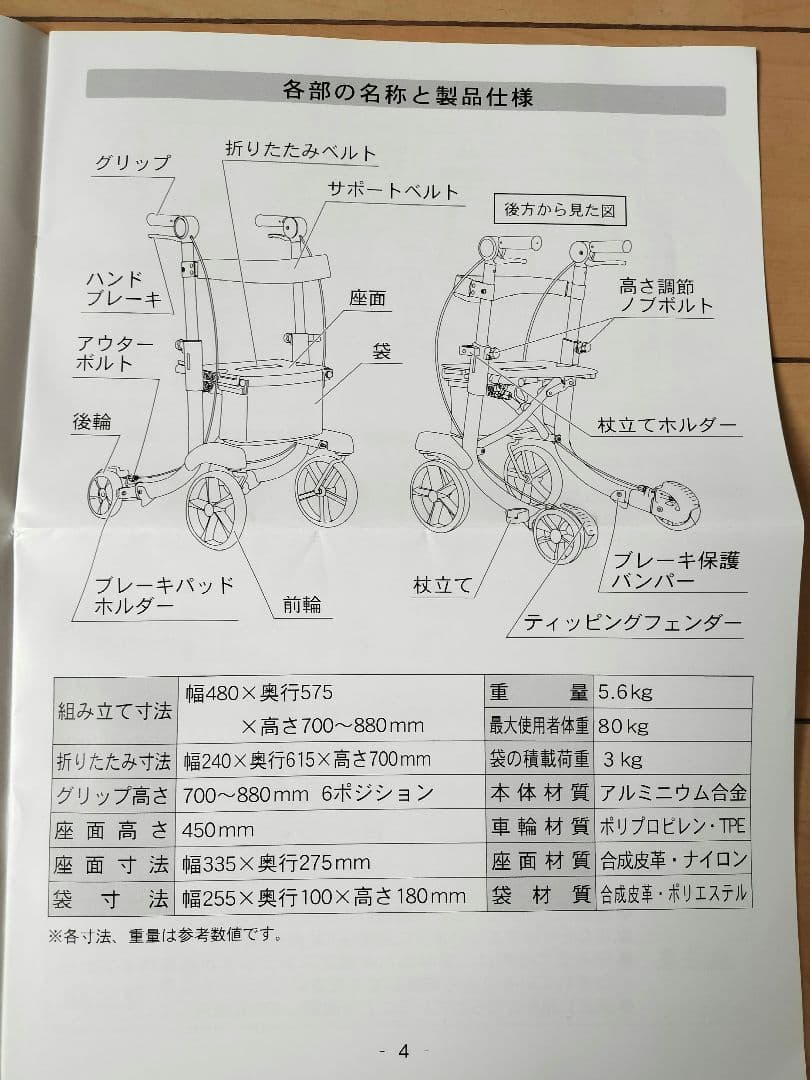 各部の名称と製品仕様
グリップ
折りたたみベルト
サポートベルト
後方から見た図
ハンド
ブレーキ
座面
高さ調節
ノブボルト
アウター
ボルト
袋
後輪
杖立てホルダー
ブレーキパッド
ホルダー
前輪
杖立て
ブレーキ保護
バンパー
ティッピングフェンダー
組み立て寸法 幅480×奥行575
×高さ700〜880mm
重量 5.6kg
最大使用者体重 80kg
折りたたみ寸法 幅240×奥行615×高さ700mm 袋の積載荷重 3kg
グリップ高さ 700〜880mm 6ポジション 本体材質 アルミニウム合金
座面高さ 450mm 車輪材質 ポリプロピレン・TPE
座面寸法 幅335×奥行275mm 座面材質 合成皮革・ナイロン
袋寸法 幅255×奥行100×高さ180mm 袋材質 合成皮革・ポリエステル
※各寸法、重量は参考数値です。
- 4 -